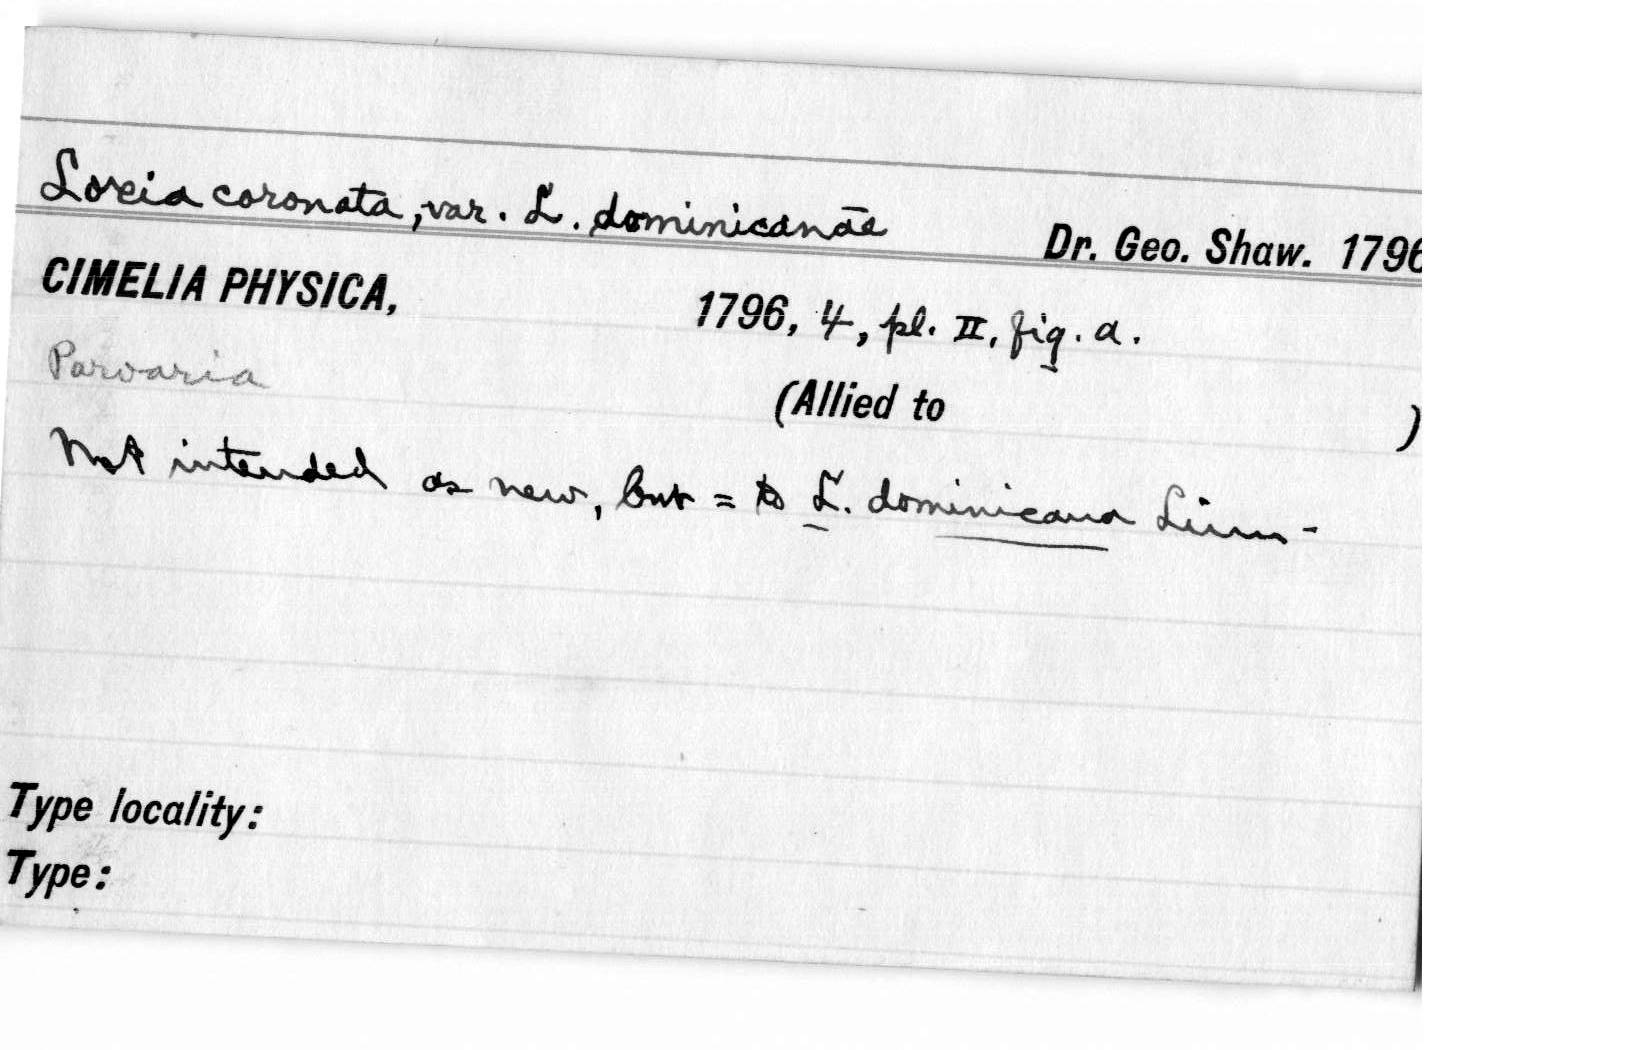 Loxia coronata, var. L. dominicanæ Dr. Geo. Shaw. 1796
CIMELIA PHYSICA, 1796, 4, pl. II, fig. a.
Paroaria
(Allied to )
Not intended as new, but = to L. dominicana Linn-
Type locality:
Type: